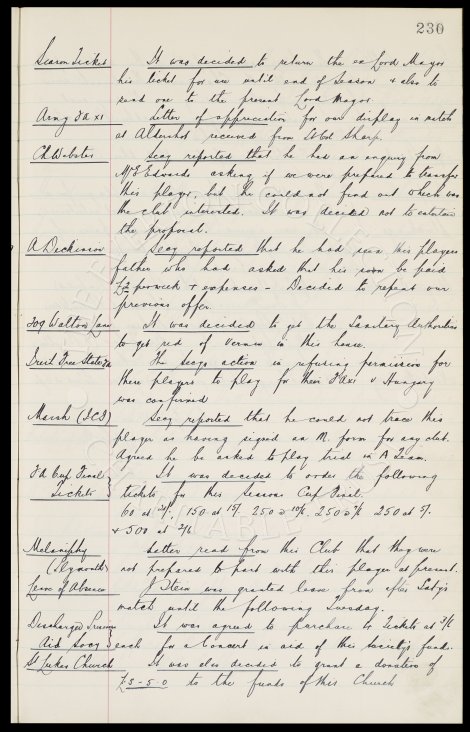 230
Season Ticket It was decided to return the ex Lord Mayor
his ticket for use until end of Season & also to
send one to the present Lord Mayor
Army FA XI Letter of appreciation for our display in match
at Aldershot received from Sharp.
C.H. Webster Secy reported that he had an enquiry from
Mr Edwards asking if we were prepared to transfer
this player, but he could not find out which was
the club interested. It was decided not to entertain
the proposal.
A Dickinson Secy reported that he had seen this players
father who had asked that his son be paid
£2 per week & expenses – Decided to repeat our
previous offer.
309 Walton Lane It was decided to get the Sanitary Authorities
to get rid of Vermin in this house.
Irish Free State FA The Secys action in refusing permission for
these players to play for their FA XI v Hungary
was confirmed
Marsh (ICI) Secy reported that he could not trace this
player as having signed an M. form for any club.
Agreed he be asked to play trial in A Team.
FA Cup Final It was decided to order the following
Tickets tickets for this seasons Cup Final.
60 at 150 at 15/- 250 @ 10/6 250 @ 250 at 5/-
& 500 at 2/6
Melaniphy Letter read from this Club that they were
(Plymouth) not prepared to part with this player at present.
Leave of Absence J Stein was granted leave from after Satys
match until the following Tuesday.
Discharged It was agreed to purchase Tickets at 3/6
Aid Socy each for a Concert in aid of this society's funds.
St Lukes Church It was also decided to grant a donation of
£3-5-0 to the funds of this Church